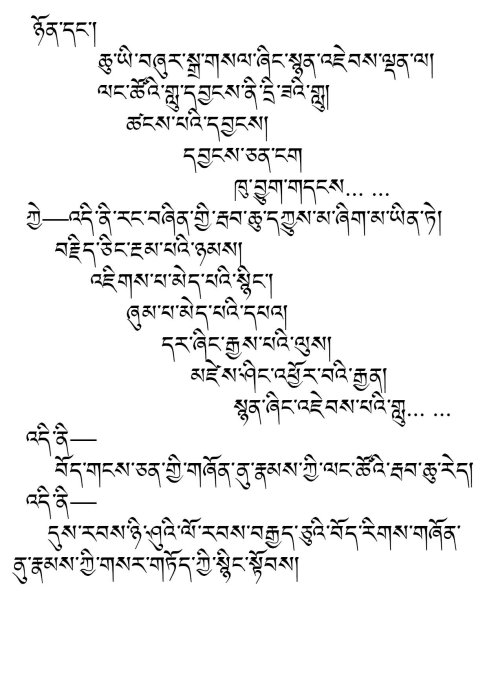 ཉོན་དང་།
ཆུ་ཡི་བཞུར་སྒྲ་གསལ་ཞིང་སྙན་འཇེབས་ལྡན་ལ།
ལང་ཚོའི་གླུ་དབྱངས་ནི་དྲི་ཟའི་གླུ།
ཚངས་པའི་དབྱངས།
དབྱངས་ཅན་ངག
ཁུ་བྱུག་གདངས… …
ཀྱེ—འདི་ནི་རང་བཞིན་གྱི་རྦབ་ཆུ་དཀྱུས་མ་ཞིག་མ་ཡིན་ཏེ།
བརྗིད་ཅིང་རྔམ་པའི་ཉམས།
འཇིགས་པ་མེད་པའི་སྙིང་།
ཞུམ་པ་མེད་པའི་དཔའ།
དར་ཞིང་རྒྱས་པའི་ལུས།
མཛེས་ཤིང་འཕྱོར་བའི་རྒྱན།
སྙན་ཞིང་འཇེབས་པའི་གླུ… …
འདི་ནི—
བོད་གངས་ཅན་གྱི་གཞོན་ནུ་རྣམས་ཀྱི་ལང་ཚོའི་རྦབ་ཆུ་རེད།
འདི་ནི—
དུས་རབས་ཉི་ཤུའི་ལོ་རབས་བརྒྱད་ཅུའི་བོད་རིགས་གཞོན་
ནུ་རྣམས་ཀྱི་གསར་གཏོད་ཀྱི་སྙིང་སྟོབས།